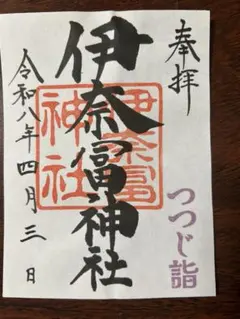 奉拝
つつじ詣
伊奈冨神社
伊奈冨
神社
令和八年四月三日